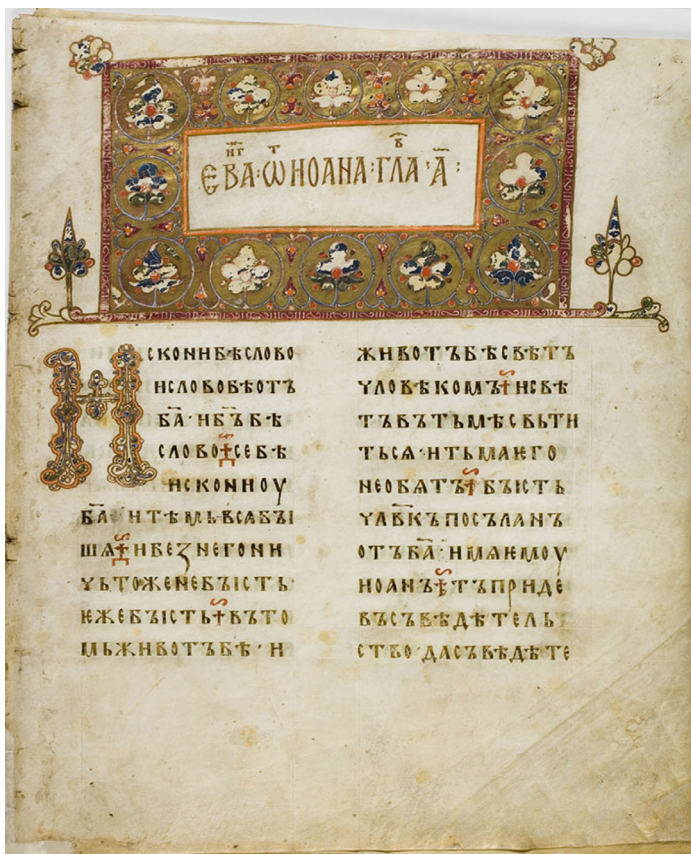 ЕВА·ѾИОАНА·ГЛА·А҃·
ИСКОНИБѢСЛОВО
ИСЛОВОБѢОТЪ
БА҃·ИБЪ҃БѢ
СЛОВО СЕБѢ
ИСКОНИОУ
БА҃ИТѢМЬВСАБЪІ
ШѦ ИБЕЗНЕГОНИ
ЧЬТОЖЕНЕБЪІСТЬ·
ѤЖЕБЪІСТЬ ВЪТО
МЬЖИВОТЪБѢ·И
ЖИВОТЪБѢСВѢТЪ
ЧЛОВѢКОМЪ ИСВѢ
ТЪВЪТЬМѢСВЬТИ
ТЬСѦ·ИТЬМАѤГО
НЕОБѦТЪ БЪІСТЬ
ЧЛ҃ВКЪПОСЪЛАНЪ
ОТЪБА҃·ИМѦѤМОУ
ИОАНЪ ТЪПРИДЕ
ВЪСЪВѢДѢТЕЛЬ
СТВО·ДАСЪВѢДѢТЕ